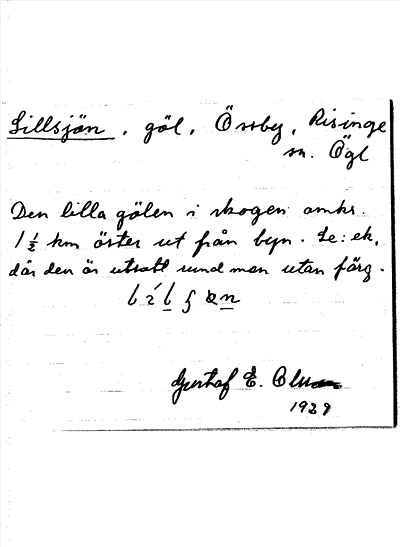 Lillsjön, göl, Össby, Risinge
sn. Ögl
Den lilla gölen i skogen omkr.
1 ½ km öster ut från byn. Se: ek,
där den är utsatt rund men utan färg.
Gustaf E. 
1929